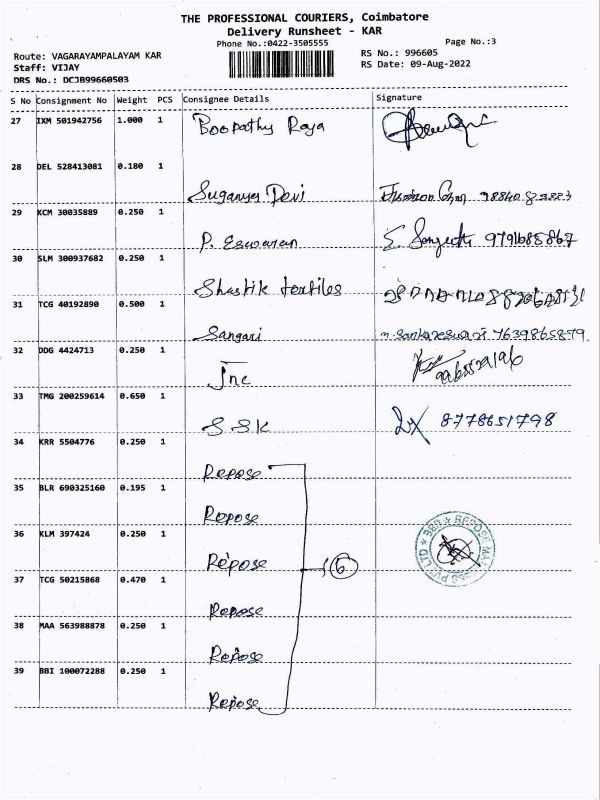 THE PROFESSIONAL COURIERS, Coimbatore
Delivery Runsheet - KAR
Phone No.:0422-3505555
Page No.:3
Route: VAGARAYAMPALAYAM KAR
RS No.: 996605
Staff: VIJAY
RS Date: 09-Aug-2022
DRS No.: DCJB99660503
S No Consignment No Weight PCS Consignee Details Signature
27 IXM 501942756 1.000 1 Boopathy Raja
28 DEL 528413081 0.180 1
Suganya Devi
29 KCM 30035889 0.250 1
P. Eswaran 9791685867
30 SLM 300937682 0.250 1
Shastik textiles
31 TCG 40192890 0.500 1
Sangari 7639865879
32 DDG 4424713 0.250 1
Jnc
33 TMG 200259614 0.650 1
S.S.K 8778651798
34 KRR 5504776 0.250 1
Repose
35 BLR 690325160 0.195 1
Repose
36 KLM 397424 0.250 1
Repose 6
37 TCG 50215868 0.470 1
Repose
38 MAA 563988878 0.250 1
Repose
39 BBI 100072288 0.250 1
Repose